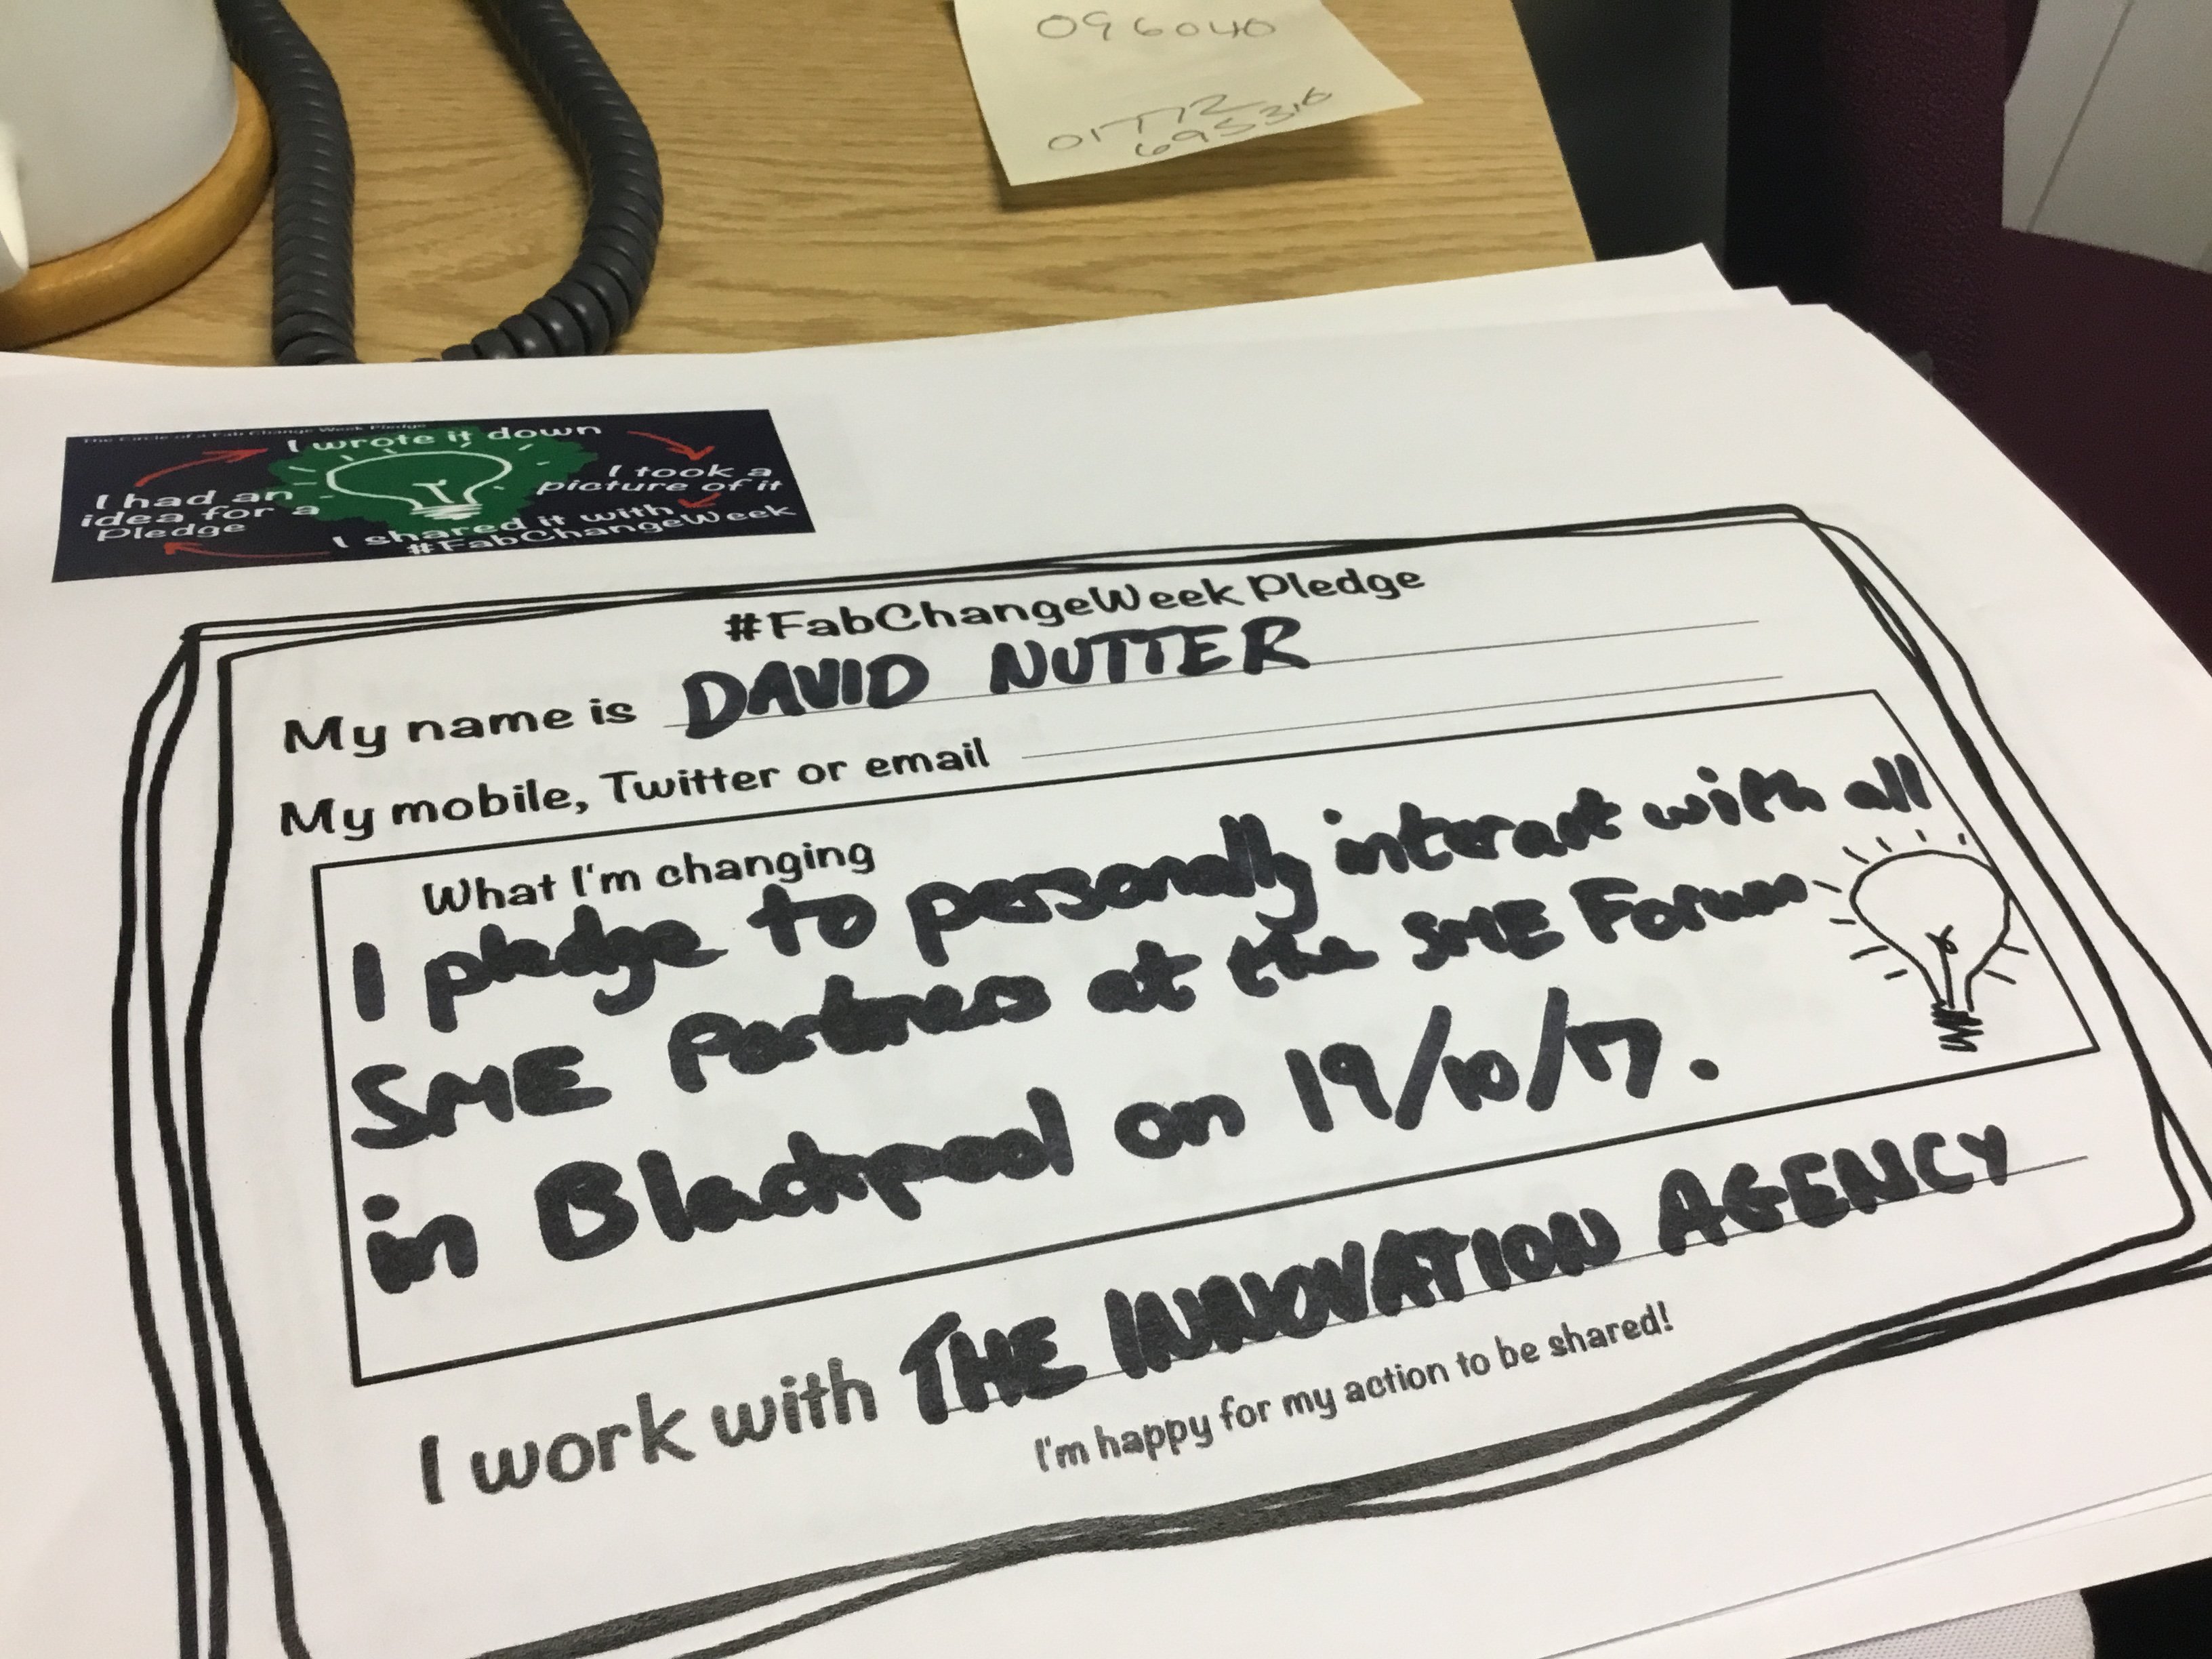 096040
01772
695316
The Circle of a Fab Change Week Pledge
I wrote it down
I took a
picture of it
I had an
idea for a
Pledge
I shared it with
#FabChangeWeek
#FabChangeWeek Pledge
My name is DAVID NUTTER
My mobile, Twitter or email
What I'm changing
I pledge to personally interact with all
SME Partners at the SME Forum
in Blackpool on 19/10/17.
I work with THE INNOVATION AGENCY
I'm happy for my action to be shared!